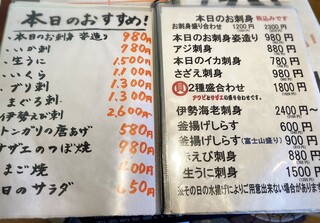 本日のおすすめ!
本日のお刺身 姿造り 980円
いか刺 780円
生うに 1500円
いくら 1100円
ブリ刺 1.300
まぐろ刺 1.300
伊勢えび刺 2,600～
トンガリの唐あげ 580円
サザエのつぼ焼 980円
まご焼
日のサラダ 650円
本日のお刺身 税込みです
お刺身盛り合わせ 1200円 2300円
本日のお刺身姿造り 980円
アジ刺身 880円
本日のイカ刺身 780円
さざえ刺身 980円
貝2種盛合わせ 1800円
アワビとサザエの盛り合わせです。
伊勢海老刺身 2400円～
釜揚げしらす 600円
釜揚げしらす(富士山盛り) 900円
赤えび刺身 880円
生うに刺身 1500円
※その日の水揚げによりご用意出来ない場合があります